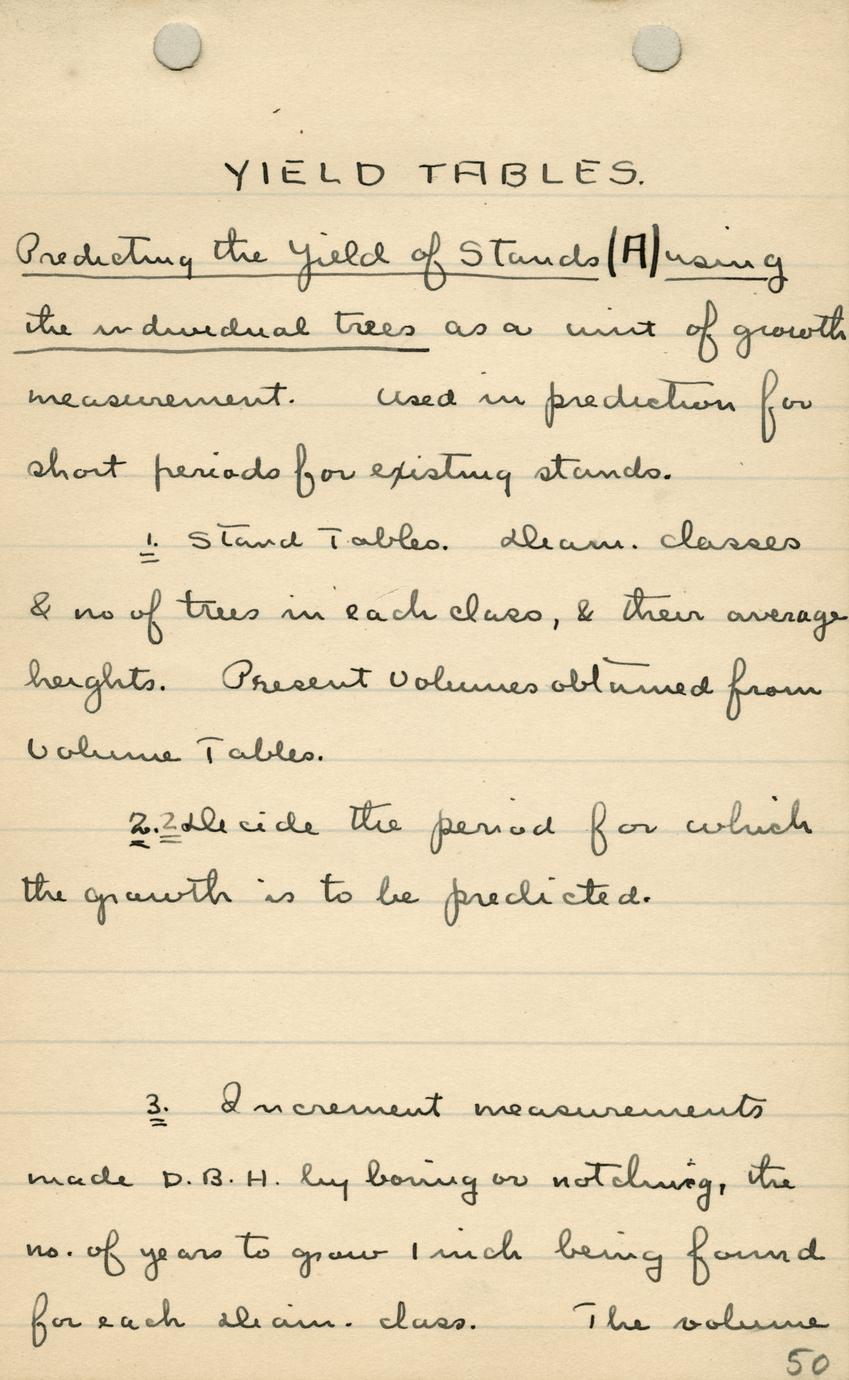 YIELD TABLES.
Predicting the Yield of Stands (A) using
the individual trees as a unit of growth
measurement. Used in prediction for
short periods for existing stands.
1. Stand Tables. Diam. classes
& no of trees in each class, & their average
heights. Present Volumes obtained from
Volume Tables.
2. 2 Decide the period for which
the growth is to be predicted.
3. Increment measurements
made D.B.H. by boring or notching, the
no. of years to grow 1 inch being found
for each diam. class. The volume
50